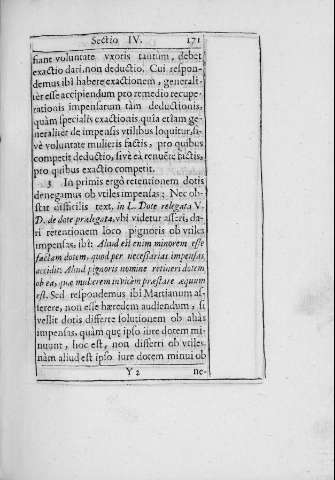 Sectio IV. 171
fiant voluntate vxoris tantùm, debet
exactio dari, non deductio. Cui respon-
demus ibi habere exactionem, generali-
tèr esse accipiendum pro remedio recupe-
rationis impensarum tàm deductionis,
quàm specialis exactionis quia etiam ge-
neraliter de impensis vtilibus loquitur, si-
vè voluntate mulieris factis, pro quibus
competit deductio, sivè ea renuere factis,
pro quibus exactio competit.
3 In primis ergò retentionem dotis
denegamus ob vtiles impensas; Nec ob-
stat difficilis text. in L. Dote relegata V.
D. de dote prælegata, vbi videtur asseri, da-
ri retentionem loco pignoris ob vtiles
impensas, ibi: Aliud est enim minorem esse
factam dotem, quod per necessarias impensas
accidit: Aliud pignoris nomine retineri dotem
ob ea, quæ mulierem invicèm præstare æquum
est. Sed respondemus ibi Martianum as-
serere, non esse hæredem audiendum, si
vellit dotis differre solutionem ob alias
impensas, quàm quę ipso iure dotem mi-
nuunt, hoc est, non differri ob vtiles
nàm aliud est ipso iure dotem minui ob
Y 2 ne-